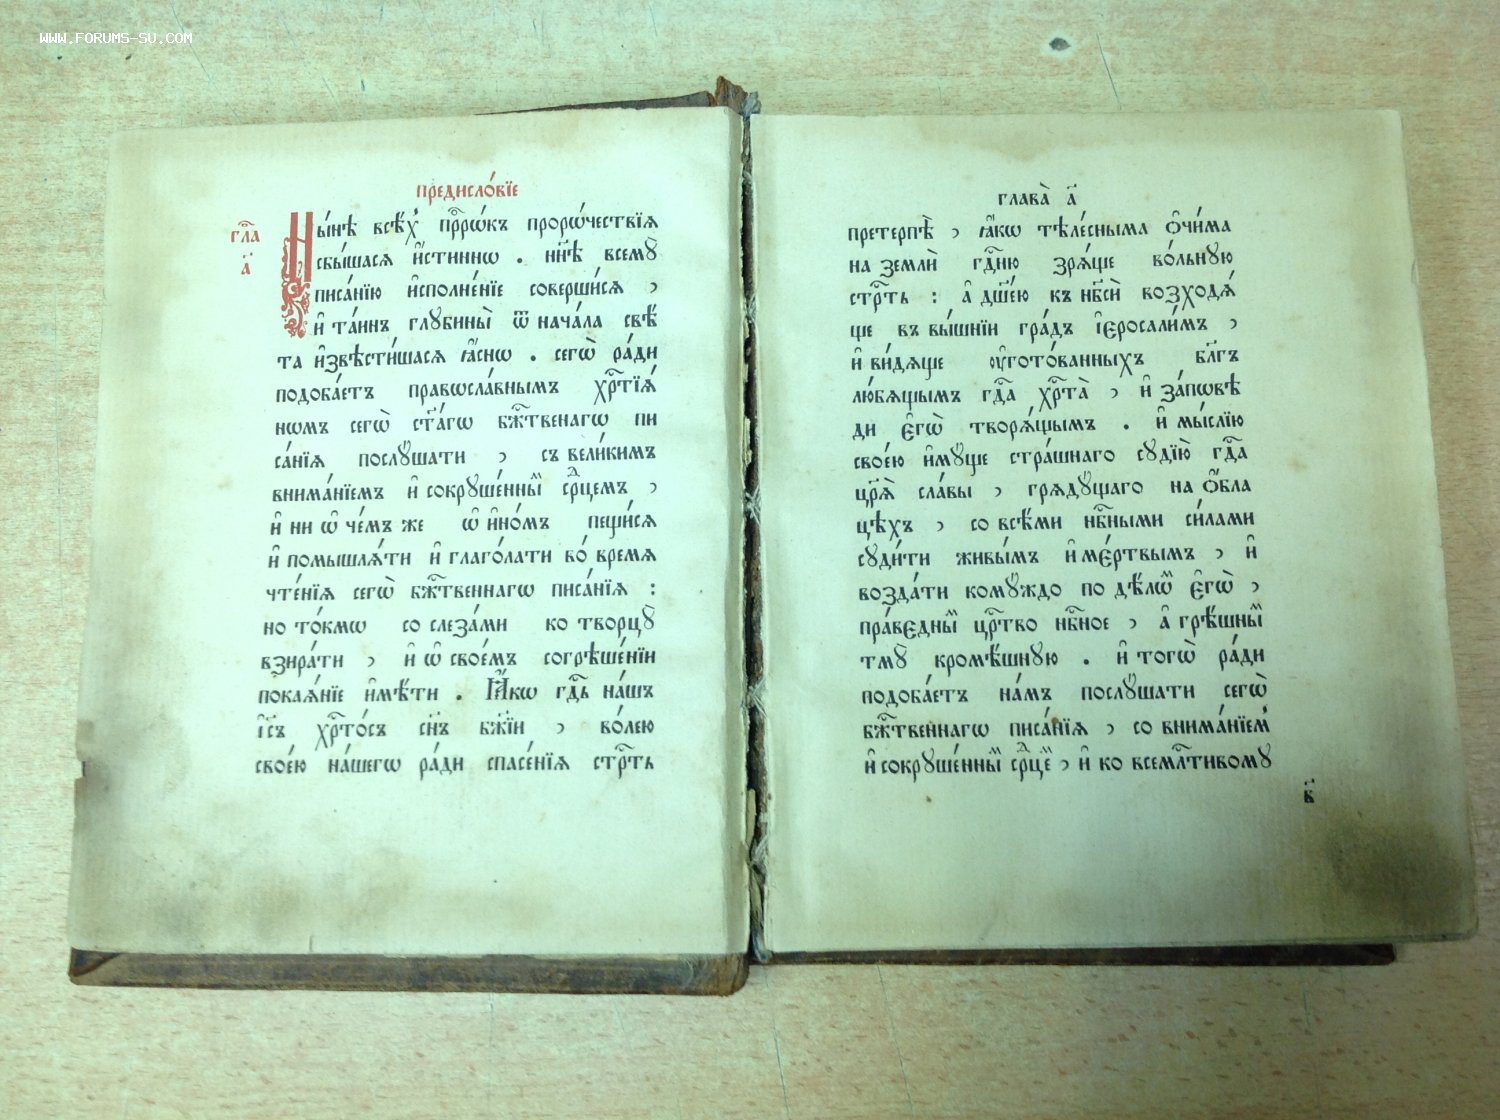 WWW.FORUMS-SU.COM
предисло́вїе
гл҃а
а҃
Ны́нѣ всѣ́хъ прⷪ҇рѡ́къ проро́чествїѧ
сбы́шасѧ и҆́стиннѡ . нн҃ѣ всемꙋ̀
писа́нїю и҆сполне́нїе соверши́сѧ ,
и҆ та́инъ глꙋбины̀ ѿ нача́ла свѣ́
та и҆звѣсти́шасѧ ꙗ҆́снѡ . сегѡ̀ ра́ди
подоба́етъ правѡсла́внымъ хрⷭ҇тїѧ́
нѡмъ сегѡ̀ ст҃а́гѡ бжⷭ҇твенагѡ пи
са́нїѧ послꙋ́шати , съ вели́кимъ
внима́нїемъ и҆ сокрꙋше́нныⷨ срⷣцемъ ,
и҆ ни ѡ҆ че́мъ же ѡ҆ и҆но́мъ пещи́сѧ
и҆ помышлѧ́ти и҆ глаго́лати во́ времѧ
чте́нїѧ сегѡ̀ бжⷭ҇твеннагѡ писа́нїѧ :
но то́кмѡ со слеза́ми ко творцꙋ̀
взира́ти , и҆ ѡ҆ свое́мъ согрѣше́нїи
покаѧ́нїе и҆мѣ́ти . Ꙗ҆́кѡ гдⷭ҇ь на́шъ
і҆и҃съ хрⷭ҇то́съ сн҃ъ бж҃їи , во́лею
свое́ю на́шегѡ ра́ди спасе́нїѧ стрⷭ҇ть
глава̀ а҃
претерпѣ̀ , ꙗ҆́кѡ тѣле́сныма ѻ҆чи́ма
на землѝ гдⷭ҇ню зрѧ́ще во́льнꙋю
стрⷭ҇ть : а҆ дш҃е́ю къ нб҃сѝ возходѧ́
ще въ вы́шнїи гра́дъ і҆єросали́мъ ,
и҆ ви́дѧще ᲂу҆гото́ванныхъ бл҃гъ
лю́бѧщымъ гдⷭ҇а хрⷭ҇та̀ , и҆ за́пѡвѣ
ди є҆гѡ̀ творѧ́щымъ . и҆ мы́слїю
свое́ю и҆мꙋ́ще стра́шнаго сꙋдїю̀ гдⷭ҇а
цр҃ѧ̀ сла́вы , грѧдꙋ́щаго на ѻ҆́бла
цѣхъ , со всѣ́ми нбⷭ҇ными си́лами
сꙋди́ти живы́мъ и҆ ме́ртвымъ , и҆
возда́ти комꙋ́ждо по дѣ́лѡⷨ є҆гѡ̀ ,
пра́вєдныⷨ црⷭ҇тво нбⷭ҇ное , а҆ грѣ́шныⷨ
тмꙋ̀ кромѣ́шнꙋю . и҆ тогѡ̀ ра́ди
подоба́етъ на́мъ послꙋ́шати сегѡ̀
бжⷭ҇твеннагѡ писа́нїѧ , со внима́нїемъ
и҆ сокрꙋше́нныⷨ срⷣцеⷨ , и҆ ко всемлⷭ҇тивомꙋ
в҃